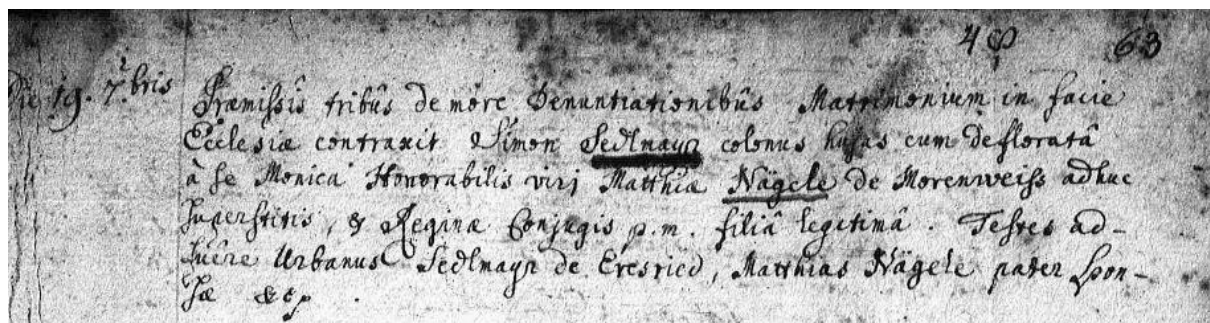 48 63
Die 19. 7bris Præmissis tribûs de more Denuntiationibûs Matrimonium in facie
Ecclesiæ contraxit Simon Sedlmayr colonus hujas cum defloratâ
à se Monica Honorabilis viri Matthiæ Nägele de Morenweiss adhuc
superstitis, & Reginæ Conjugis p.m. filiâ legitimâ. Testes ad-
fuêre Urbanus Sedlmayr de Eresried, Matthias Nägele pater spon-
sæ